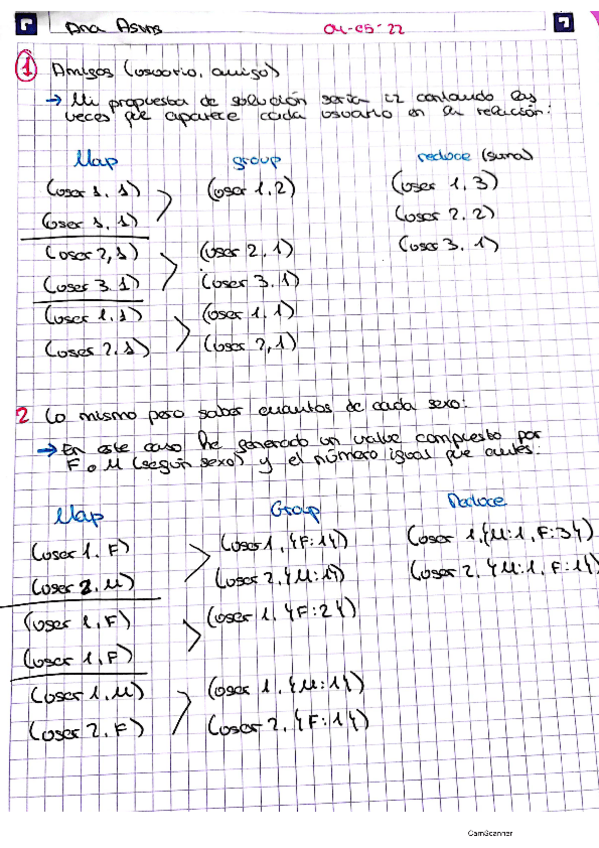 Ana Asins 04-05-22
1 Amigos (usuario, amigo)
→ Mi propuesta de solución sería ir contando las
veces que aparece cada usuario en la relación:
Map group reduce (suma)
(user 1, 1) (user 1, 2) (user 1, 3)
(user 1, 1) (user 2, 2)
(user 2, 1) (user 2, 1) (user 3, 1)
(user 3, 1) (user 3, 1)
(user 1, 1) (user 1, 1)
(user 2, 1) (user 2, 1)
2 Lo mismo pero saber cuántos de cada sexo:
→ En este caso he generado un value compuesto por
F o M (según sexo) y el número igual que antes.
Map Group Reduce
(user 1, F) (user 1, {F:1}) (user 1, {M:1, F:3})
(user 2, M) (user 2, {M:1}) (user 2, {M:1, F:1})
(user 1, F) (user 1, {F:2})
(user 1, F)
(user 1, M) (user 1, {M:1})
(user 2, F) (user 2, {F:1})
CamScanner